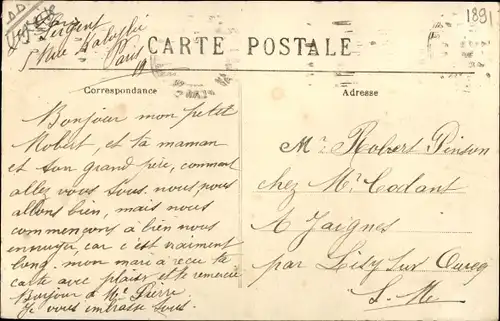 Sergent
5 Rue
Paris
19
1891
CARTE POSTALE
Correspondance
Adresse
Bonjour mon petit
Robert, et ta maman
et son grand père, comment
allez vous tous. nous nous
allons bien, mais nous
commençons à bien nous
ennuyer, car c'est vraiment
long. mon mari a reçu ta
carte avec plaisir et te remercie
Bonjour à Mr Pierre.
Je vous embrasse tous.
Mr Robert Pinson
chez Mr Codant
A Jaignes
par Lisy sur Ourcq
S. Me